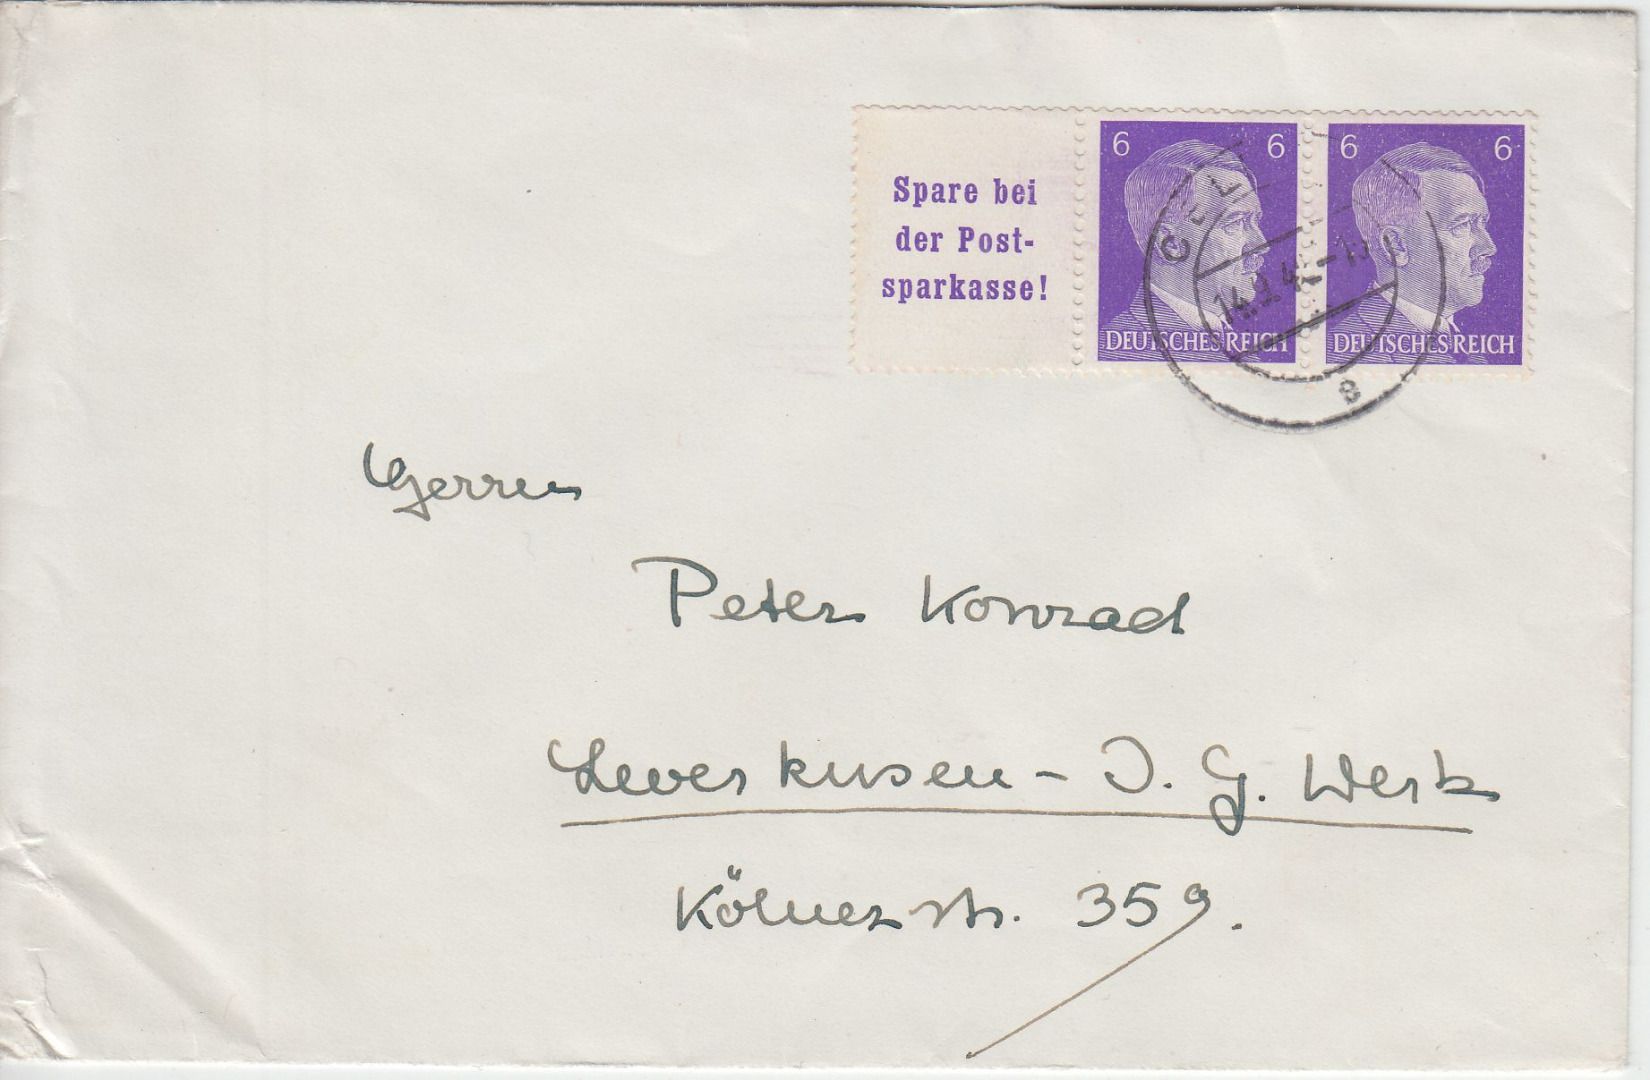 Spare bei
der Post-
sparkasse!
6 6
DEUTSCHES REICH
6 6
DEUTSCHES REICH
14.9.42-19
a
Herrn
Peter Konrad
Leverkusen - I. G. Werk
Kölnerstr. 359.